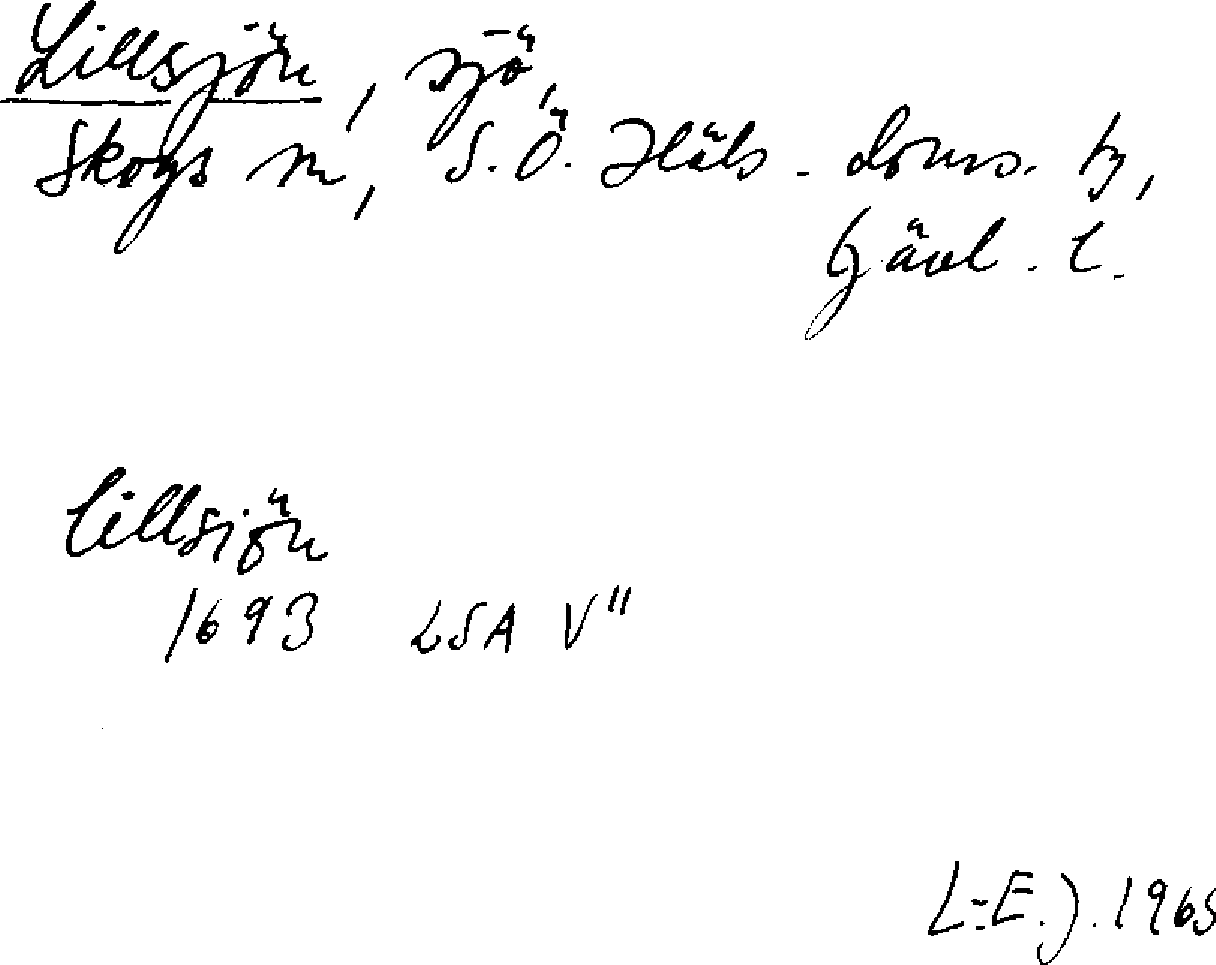 Lillsjön, sjö,
Skogs sn, S.Ö. Häls. doms. tg,
Gävl. l.
lillsjön
1693 LSA V"
L-E.J. 1965